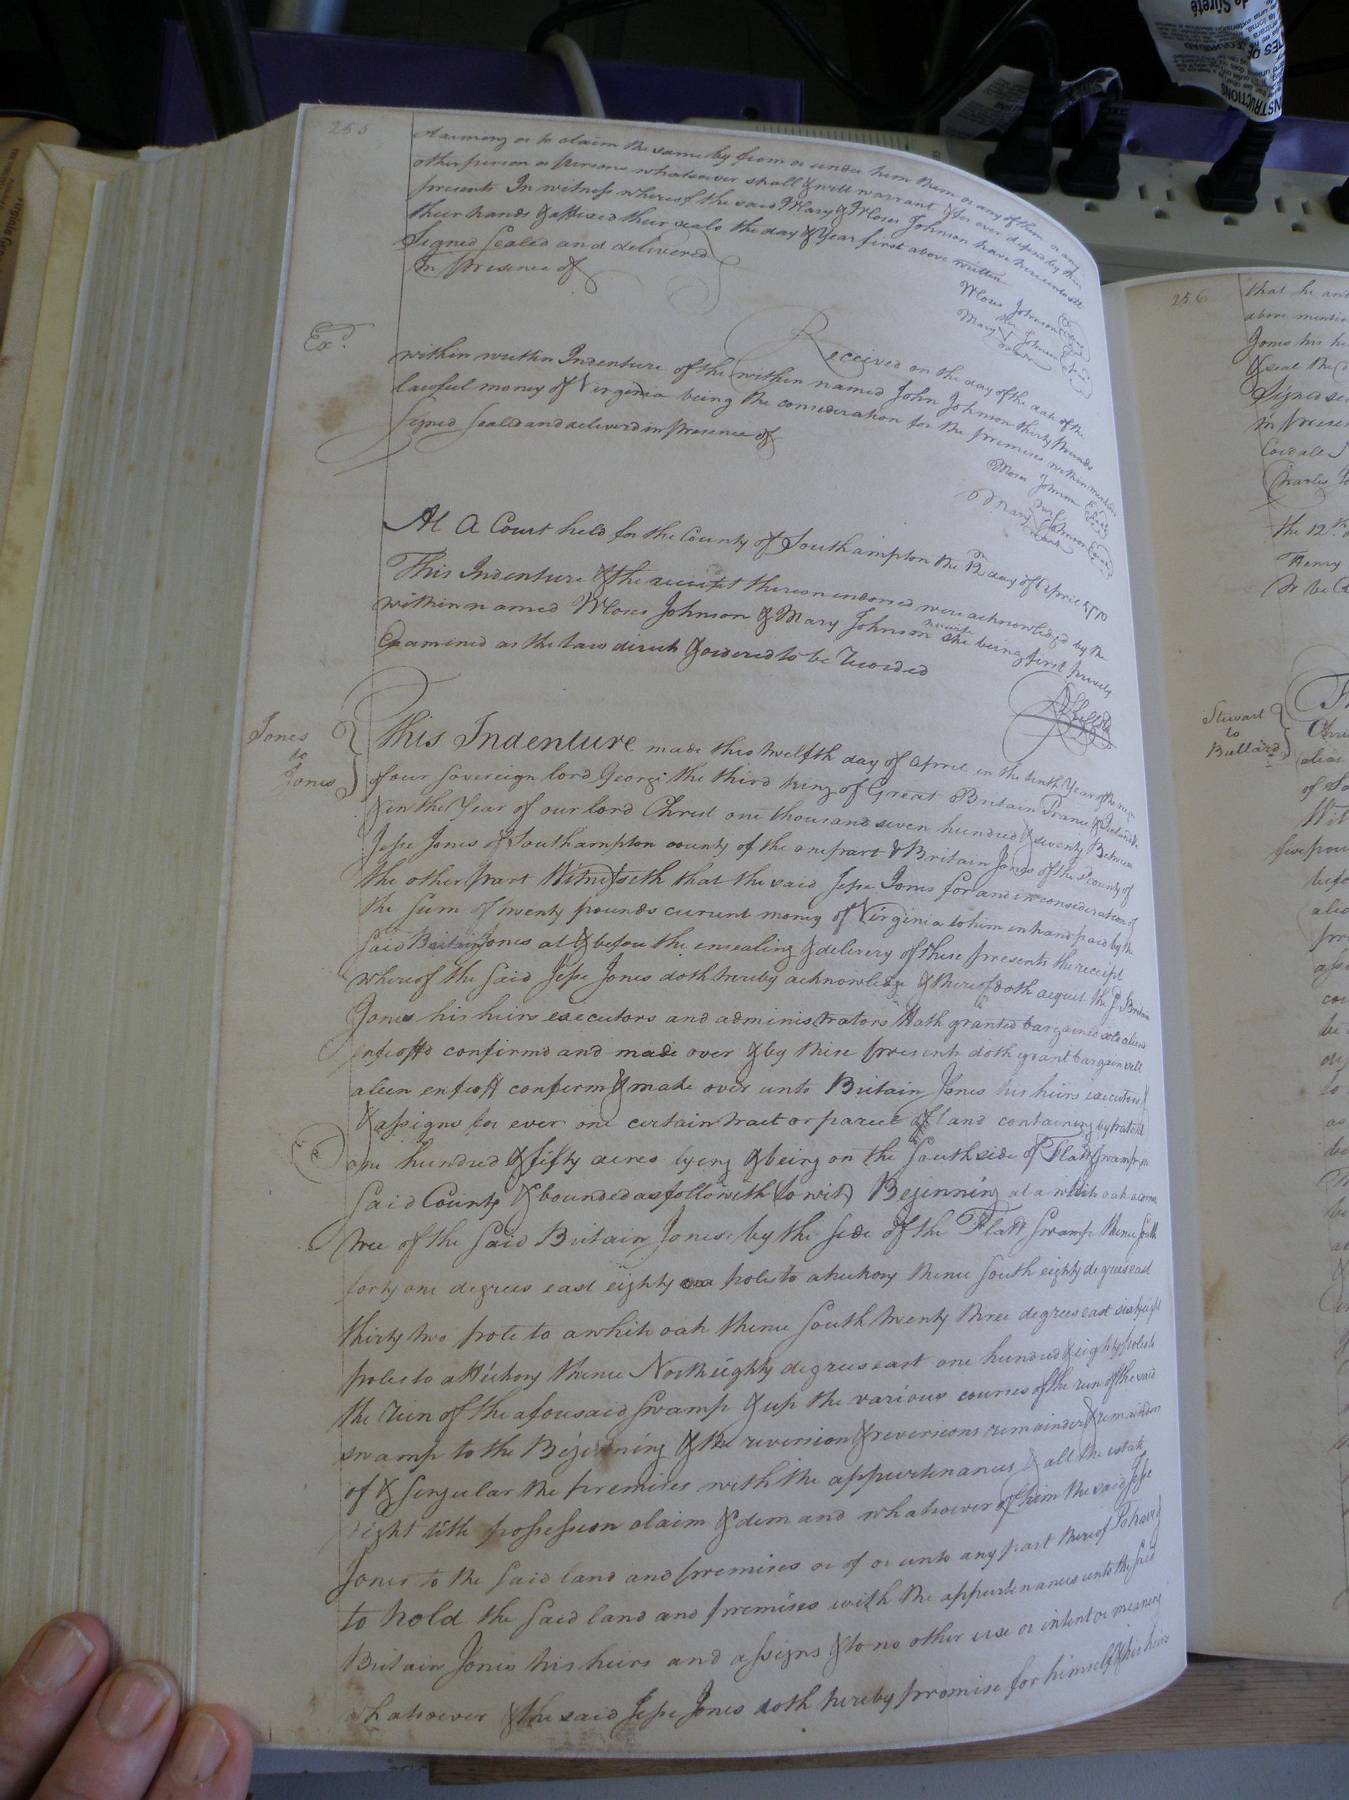 255
claiming or to claim the same by from or under him them or any of them or any
other person or persons whatsoever shall & will warrant & for ever defend by these
presents In witness whereof the said Mary & Moses Johnson have hereunto set
their hands & affixed their seals the day & Year first above written
Signed Sealed and delivered
In presence of
Moses Johnson
Mary her Johnson
mark
Exd.
Received on the day of the date of the
within written Indenture of the within named John Johnson thirty pounds
lawful money of Virginia being the consideration for the premises within mentioned
Signed Sealed and deliverd in presence of
Moses Johnson
Mary her Johnson
mark
At A Court held for the County of Southampton the 12th day of April 1770
This Indenture & the receipt thereon endorsed were acknowledged by the
within named Moses Johnson & Mary Johnson his wife she being first privily
Examened as the law directs & ordered to be Recorded
Jones
to
Jones
This Indenture made this twelfth day of April in the tenth Year of the reign
of our Sovereign lord George the third king of Great Britain France & Ireland &c
& in the Year of our lord Christ one thousand seven hundred & seventy Between
Jesse Jones of Southampton county of the one part & Britain Jones of the sd County of
the other part Witnesseth that the said Jesse Jones for and in consideration of
the sum of twenty pounds current money of Virginia to him in hand paid by the
said Britain Jones at & before the ensealing & delivery of these presents the receipt
whereof the said Jesse Jones doth hereby acknowledge & thereof doth acquit the sd Britain
Jones his heirs executors and administrators Hath granted bargained sold aliend
enfeoffd confirmd and made over & by these presents doth grant bargain sell
alien enfeoff confirm & make over unto Britain Jones his heirs executors
& assigns for ever one certain tract or parcel of land containing by
one hundred & fifty acres lying & being on the South side of Flatt Swamp in
said County & bounded as followeth (to wit) Beginning at a white oak a corner
tree of the said Britain Jones's by the side of the Flatt Swamp thence South
forty one degrees east eighty poles to a hickory thence South eighty degrees east
thirty two pole to a white oak thence South twenty three degrees east sixty eight
poles to a Hickory thence North eighty degrees east one hundred & eighty poles to
the run of the aforesaid swamp & up the various courses of the run of the said
swamp to the Beginning & the reversion & reversions remainder & remainders
of & singular the premises with the appurtenances & all the estate
right title possession claim & demand whatsoever of him the said Jesse
Jones to the said land and premises or of or unto any part thereof To have &
to hold the said land and premises with the appurtenances unto the said
Britain Jones his heirs and assigns & to no other use or intent or meaning
whatsoever & the said Jesse Jones doth hereby promise for himself & his heirs
256
that he and
above mentio
Jones his he
& seal the
Signed sea
in presen
Charles
the 12th
Henry
to be
Stewart
to
Bullard
of So
Wit
five pou
befo
alia